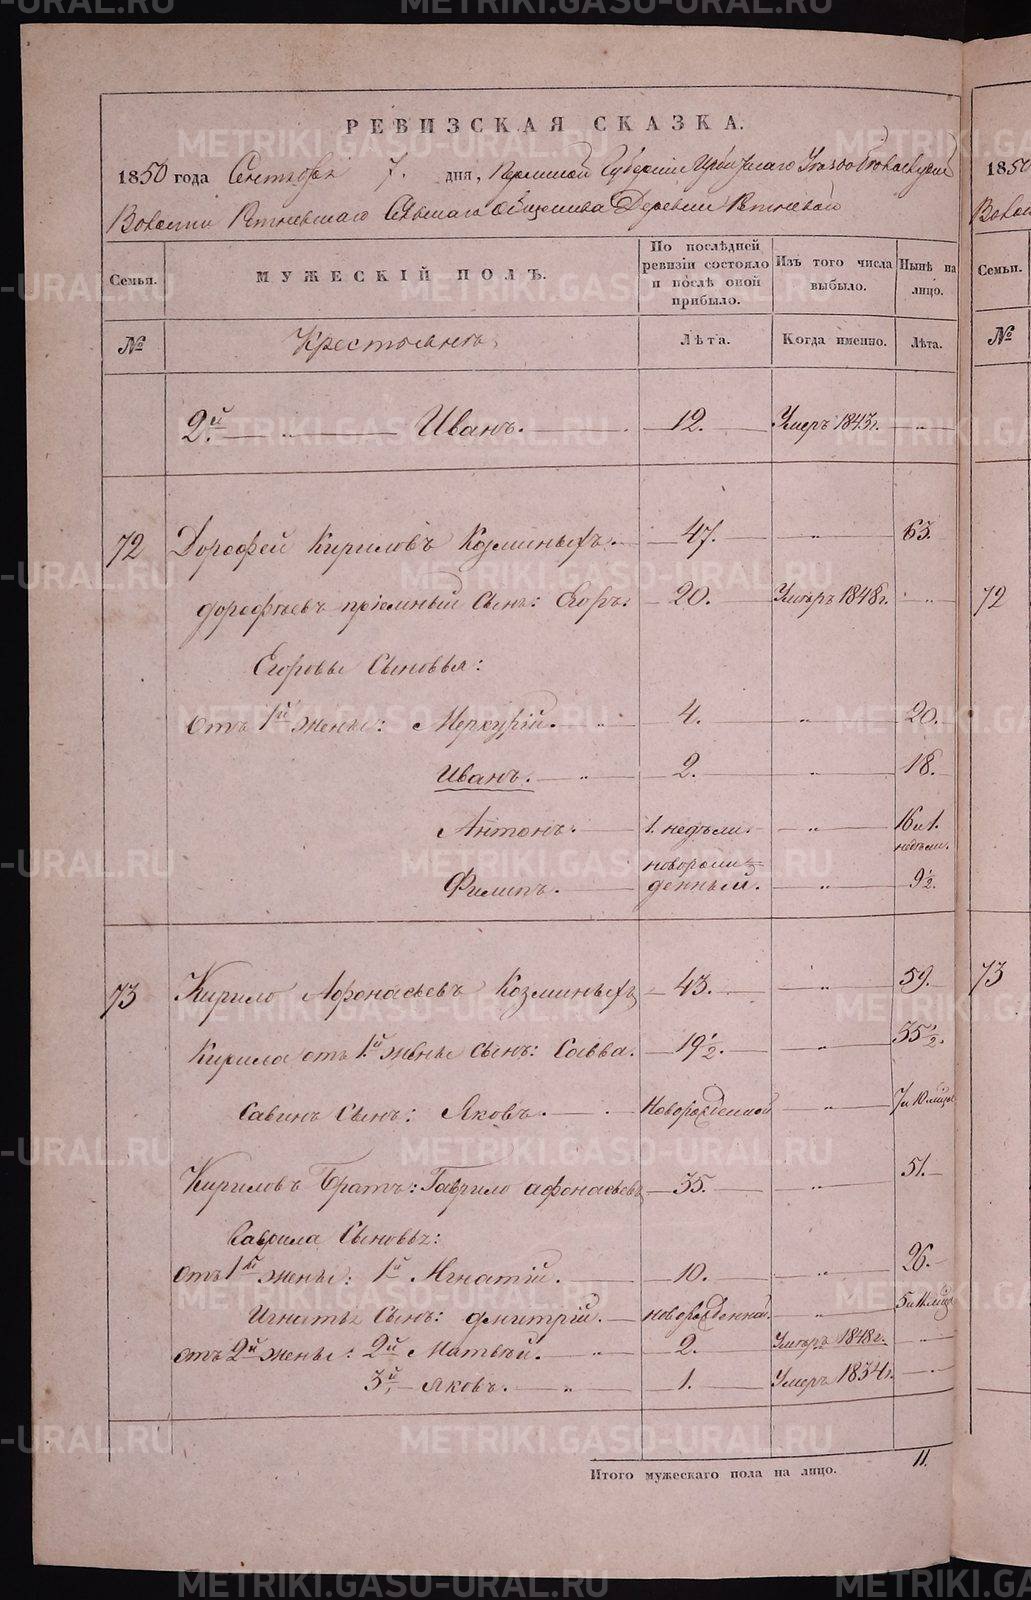 METRIKI.GASO-URAL.RU
РЕВИЗСКАЯ СКАЗКА.
1850 года Сентября 7. дня, Пермской Губернии Ирбитскаго Уезда
Волости Ретневшаго Сельскаго Общества Деревни Ретневой
Семьи. МУЖЕСКІЙ ПОЛЪ. По послѣдней ревизіи состояло и послѣ оной прибыло. Изъ того числа выбыло. Нынѣ на лицо.
№ Крестьянъ, Лѣта. Когда именно. Лѣта.
2й. — " — Иванъ. — 12. — Умеръ 1843 г. — " —
72 Дорофей Кириловъ Козминыхъ. — 47. — " — 63.
дорофѣевъ пріемный Сынъ: Егоръ: — 20. Умеръ 1848 г. — " —
Егоровы Сыновья:
отъ 1й жены: Меркурій. — " — 4. — " — 20.
Иванъ. — " — 2. — " — 18.
Антонъ. — 1. недѣли. — " — 16 и 1. недѣли.
Филипъ. — новорожденный. — " — 9½.
73 Кирило Афонасьевъ Козминыхъ — 43. — " — 59. —
Кирила отъ 1й жены Сынъ: Савва. — 19½. — " — 35½.
Савинъ Сынъ: Яковъ. — Новорожденной — " — 7 и 10 мѣсяц
Кириловъ Братъ: Гаврило афонасьевъ — 35. — " — 51. —
Гаврила Сыновья:
отъ 1й жены: 1й Игнатій. — 10. — " — 26. —
Игнатья Сынъ: дмитрій. — новорожденной. — " — 5 и 11 мѣсяц
отъ 2й жены: 2й Матвѣй. — " — 2. Умеръ 1848 г. — " —
3й, — Яковъ. — " — 1. Умеръ 1834 г. — " —
Итого мужескаго пола на лицо. 11.
1850
Волости
Семьи.
№
72
73